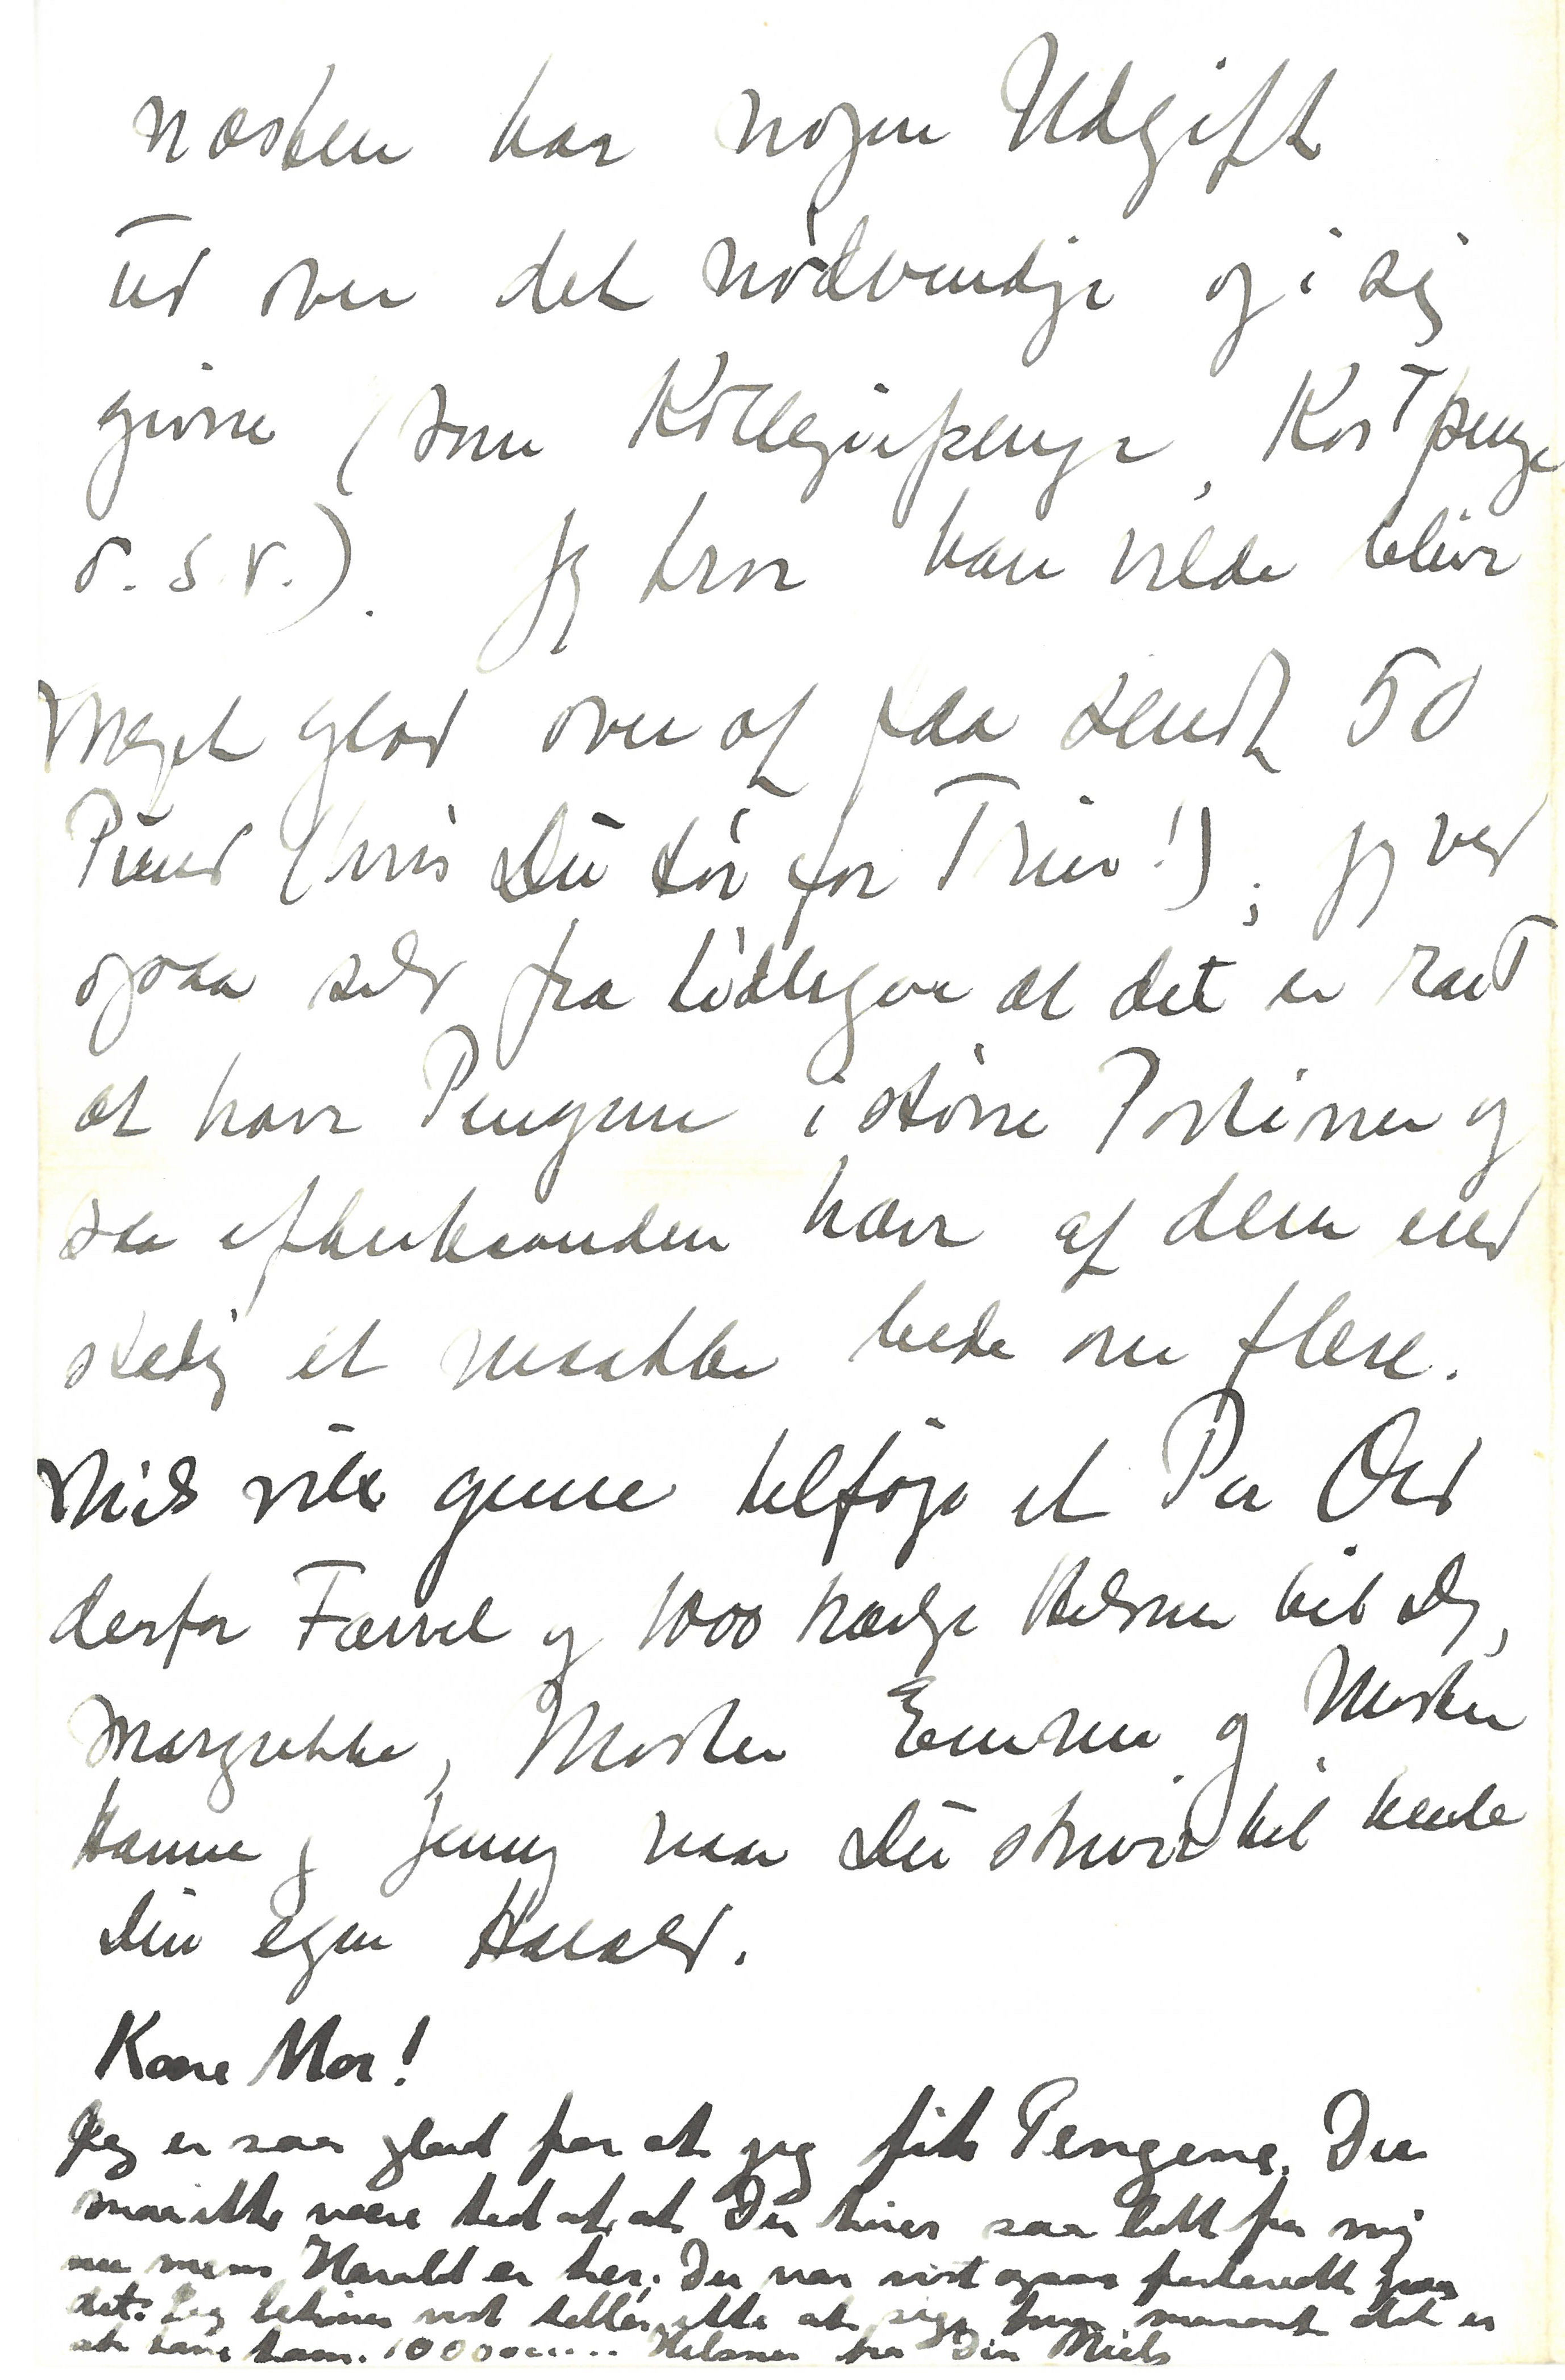 næsten har nogen Udgift
ud over det nødvendige og i sig
givne (som Kollegiepenge, Kostpenge
o.s.v.). Jeg tror han vilde blive
meget glad over at faa sendt 50
Pund (hvis Du tør for Trier!); jeg ved
ogsaa selv fra tidligere at det er rart
at have Pengene i større Portioner og
saa efterhaanden hæve af dem end
stadig at maatte bede om flere.
Niels vilde gerne tilføje et Par Ord
derfor Farvel og 1000 kærlige Hilsner til Dig,
Margrethe, Moster Emma og Moster
Hanne og Jenny naar Du skriver til hende
Din egen Harald.
Kære Mor!
Jeg er saa glad for at jeg fik Pengene. Du
maa ikke være ked af at Du hører saa lidt fra mig
nu mens Harald er her. Du var vist ogsaa forberedt paa
det. Jeg behøver vist heller ikke at sige hvor morsomt det er
at have ham. 10000..... Hilsner fra Din Niels